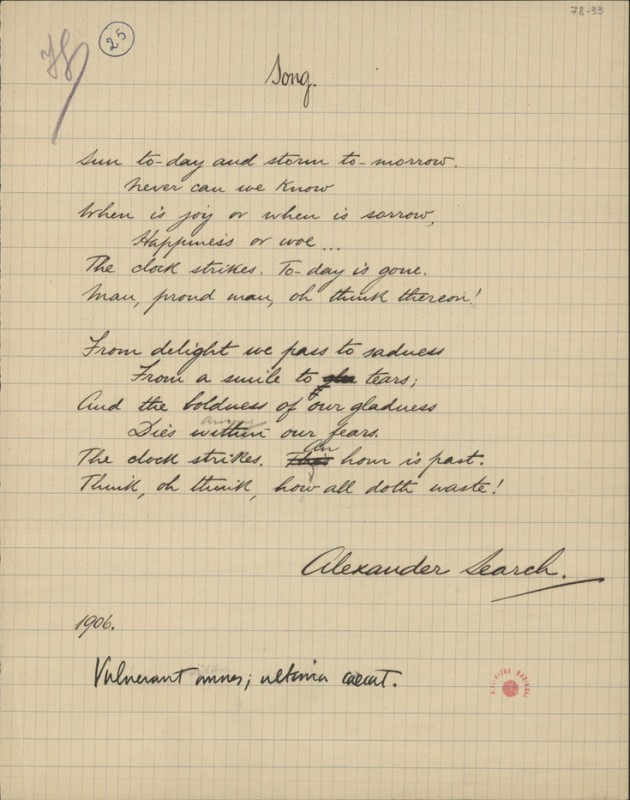 78-33
25
Song.
Sun to-day and storm to-morrow.
Never can we know
When is joy or when is sorrow,
Happiness or woe...
The clock strikes. To-day is gone.
Man, proud man, oh think thereon!
From delight we pass to sadness
From a smile to tears;
And the boldness of our gladness
among
Dies within our fears.
An
The clock strikes. hour is past.
Think, oh think, how all doth waste!
Alexander Search.
1906.
Vulnerant omnes; ultima